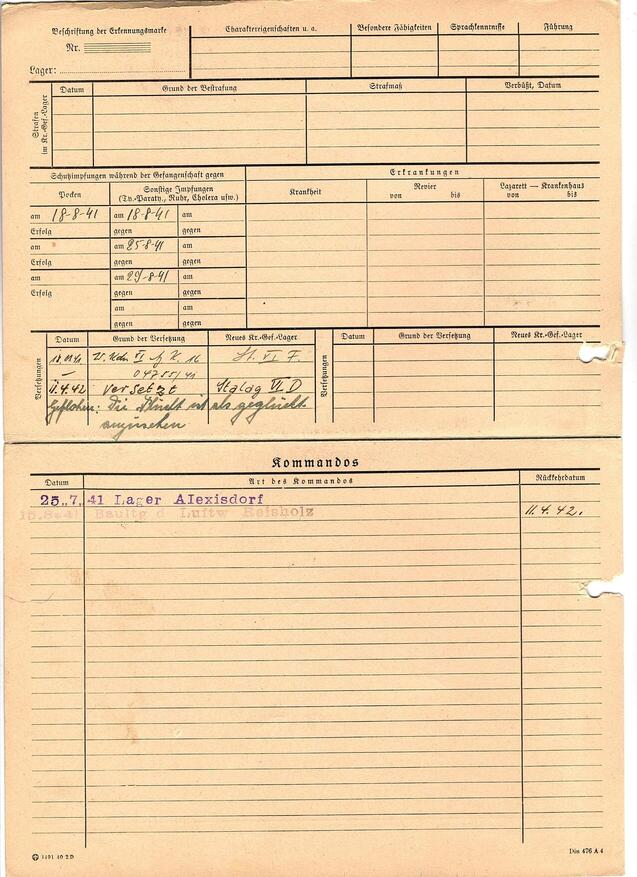 Beschriftung der Erkennungsmarke
Nr.
Lager:
Charaktereigenschaften u. a.
Besondere Fähigkeiten
Sprachkenntnisse
Führung
Strafen im Kr.-Gef.-Lager
Datum
Grund der Bestrafung
Strafmaß
Verbüßt, Datum
Schutzimpfungen während der Gefangenschaft gegen
Erkrankungen
Pocken
Sonstige Impfungen
(Ty.-Paraty., Ruhr, Cholera usw.)
Krankheit
Revier
von bis
Lazarett — Krankenhaus
von bis
am 18-8-41 am 18-8-41 am
Erfolg gegen gegen
am am 25-8-41 am
Erfolg gegen gegen
am am 29-8-41 am
Erfolg gegen gegen
am am
gegen gegen
Versetzungen
Datum Grund der Versetzung Neues Kr.-Gef.-Lager
Versetzungen
Datum Grund der Versetzung Neues Kr.-Gef.-Lager
VI St. VI F.
11.4.42 versetzt Stalag VI D
Geflohen: Die Flucht ist als geglückt
anzusehen
Kommandos
Datum Art des Kommandos Rückkehrdatum
25.7.41 Lager Alexisdorf
15.8.41 Baultg d Luftw Reisholz 11.4.42.
1491 40 2D
Din 476 A 4